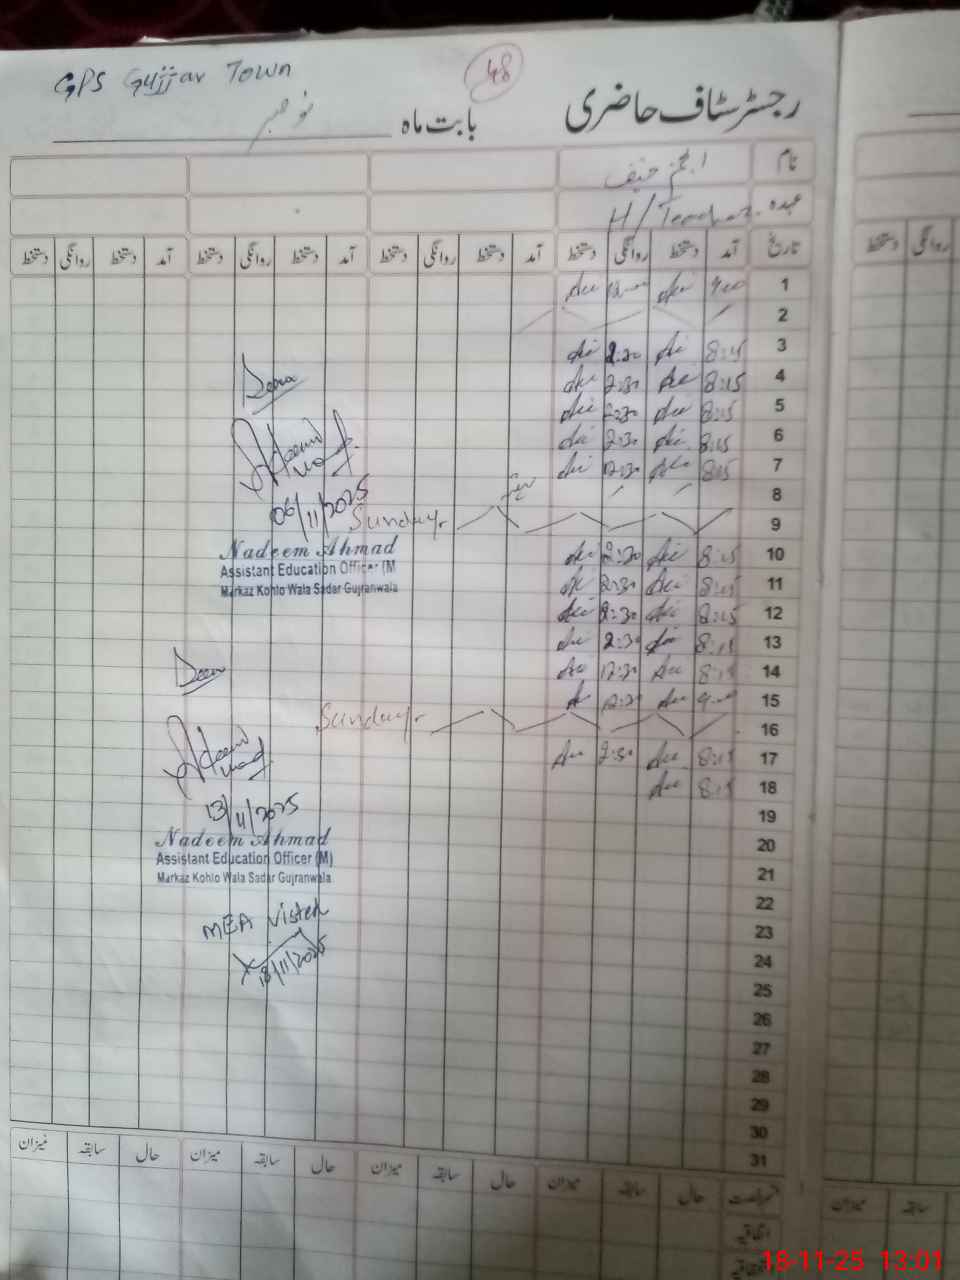 GPS Gujjar Town
48
رجسٹر سٹاف حاضری بابت ماہ نومبر
نام
عہدہ H/Teacher
تاریخ آمد دستخط روانگی دستخط آمد دستخط روانگی دستخط آمد دستخط روانگی دستخط آمد دستخط روانگی دستخط
دستخط روانگی
1 9:00 12:00
2
3 8:15 2:30
4 8:15 2:30
5 8:15 2:30
6 8:15 2:30
7 8:15 12:30
8
9 Sunday
10 8:15 2:30
11 8:15 2:30
12 8:15 2:30
13 8:15 2:30
14 8:15 12:30
15
16 Sunday
17 8:15 2:30
18 8:15
19
20
21
22
23
24
25
26
27
28
29
30
31
06/11/2025
Nadeem Ahmad
Assistant Education Officer (M
Markaz Kohlo Wala Sadar Gujranwala
13/11/2025
Nadeem Ahmad
Assistant Education Officer (M)
Markaz Kohlo Wala Sadar Gujranwala
MEA Visted
18/11/2025
حال سابقہ میزان حال سابقہ میزان حال سابقہ میزان حال سابقہ میزان
سابقہ میزان
18-11-25 13:01